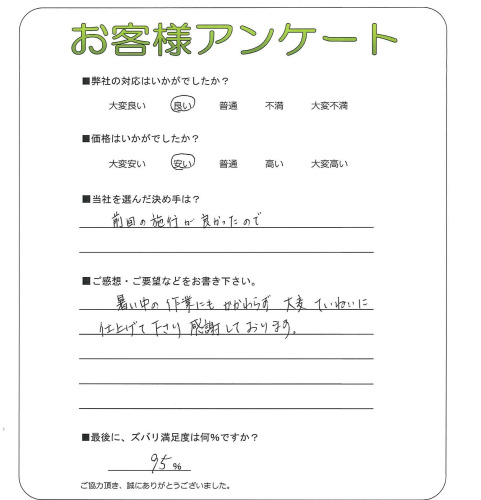 お客様アンケート
■弊社の対応はいかがでしたか？
大変良い 良い 普通 不満 大変不満
■価格はいかがでしたか？
大変安い 安い 普通 高い 大変高い
■当社を選んだ決め手は？
前回の施行が良かったので
■ご感想・ご要望などをお書き下さい。
暑い中の作業にもかかわらず 大変 ていねいに
仕上げて下さり 感謝しております。
■最後に、ズバリ満足度は何%ですか？
95 %
ご協力頂き、誠にありがとうございました。